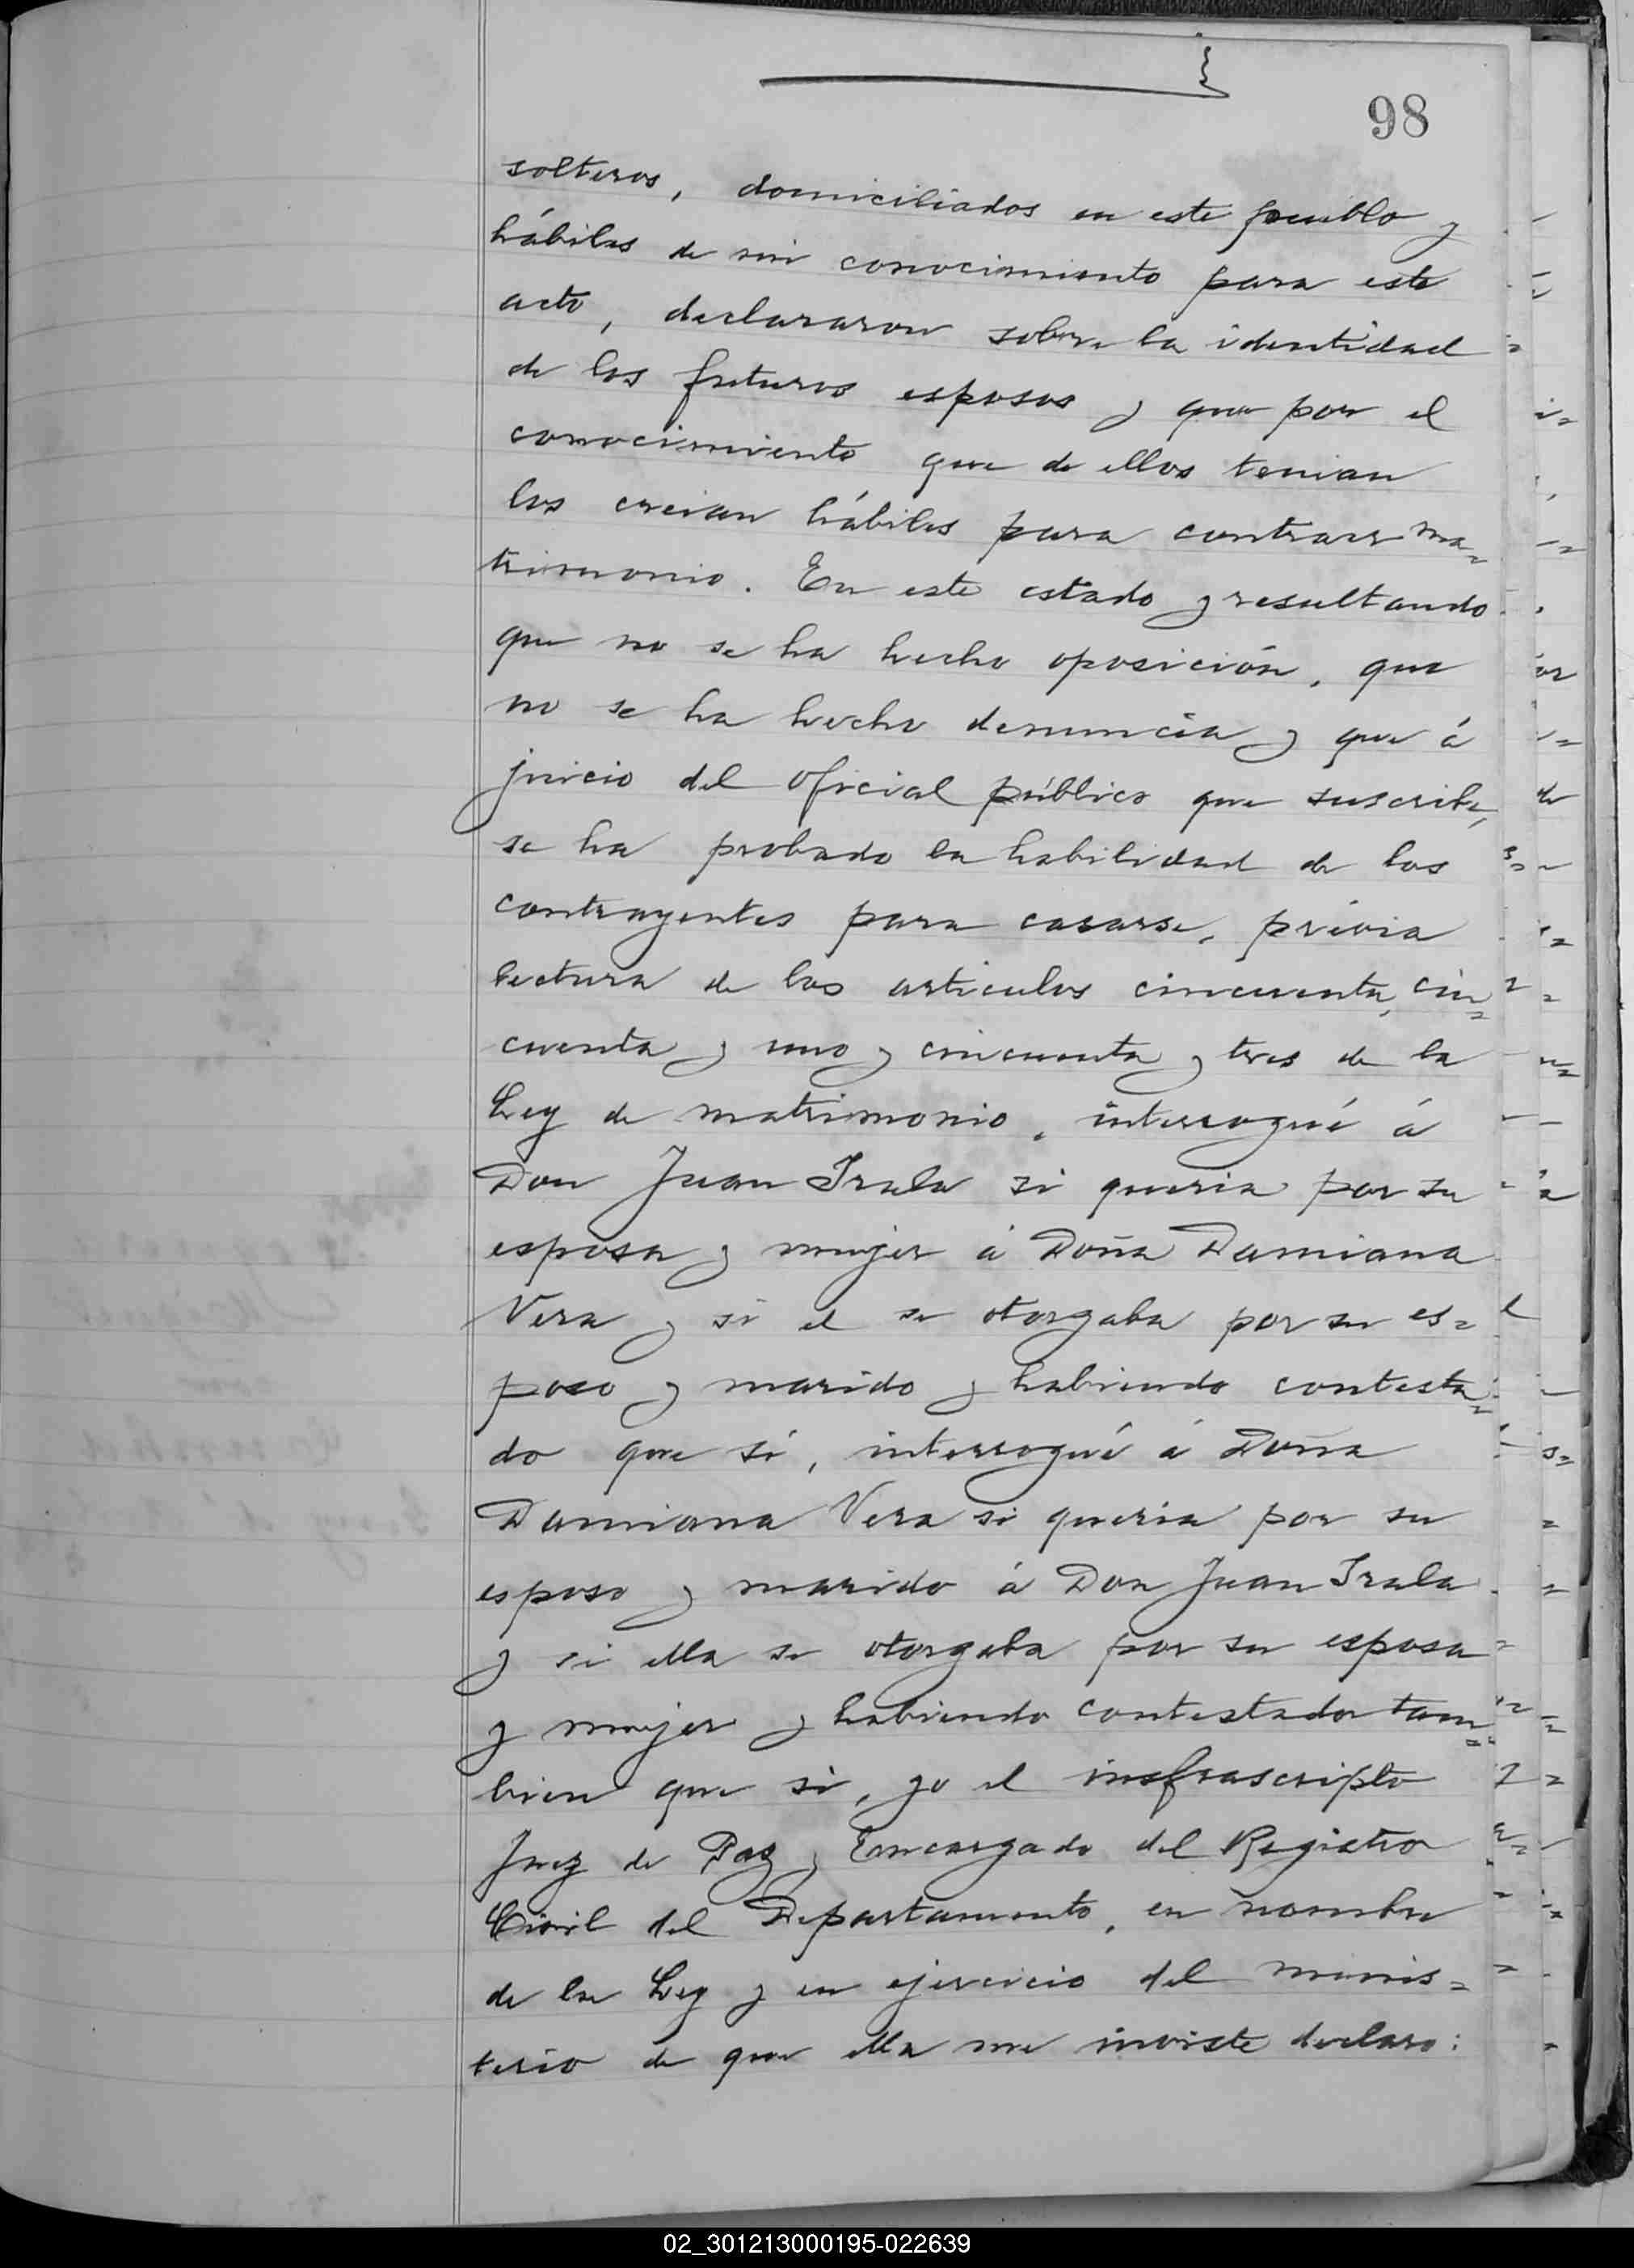 98
solteros, domiciliados en este pueblo y
hábiles de mi conocimiento para este
acto, declararon sobre la identidad
de los futuros esposos y que por el
conocimiento que de ellos tenian
los creian hábiles para contraer ma=
trimonio. En este estado y resultando
que no se ha hecho oposición, que
no se ha hecho denuncia y que á
juicio del oficial público que suscribe,
se ha probado la habilidad de los
contrayentes para casarse, prévia
lectura de los articulos cincuenta, cin=
cuenta y uno y cincuenta y tres de la
Ley de matrimonio, interrogué á
Don Juan Irala si queria por su
esposa y mujer á Doña Damiana
Vera y si el se otorgaba por su es=
poso y marido y habiendo contesta=
do que sí, interrogué á Doña
Damiana Vera si queria por su
esposo y marido á Don Juan Irala
y si ella se otorgaba por su esposa
y mujer y habiendo contestado tam=
bien que si, yo el insfrascripto
Juez de Paz y Encargado del Registro
Civil del Departamento, en nombre
de la Ley y en ejercicio del minis=
terio de que ella me inviste declaro:
02_301213000195-022639